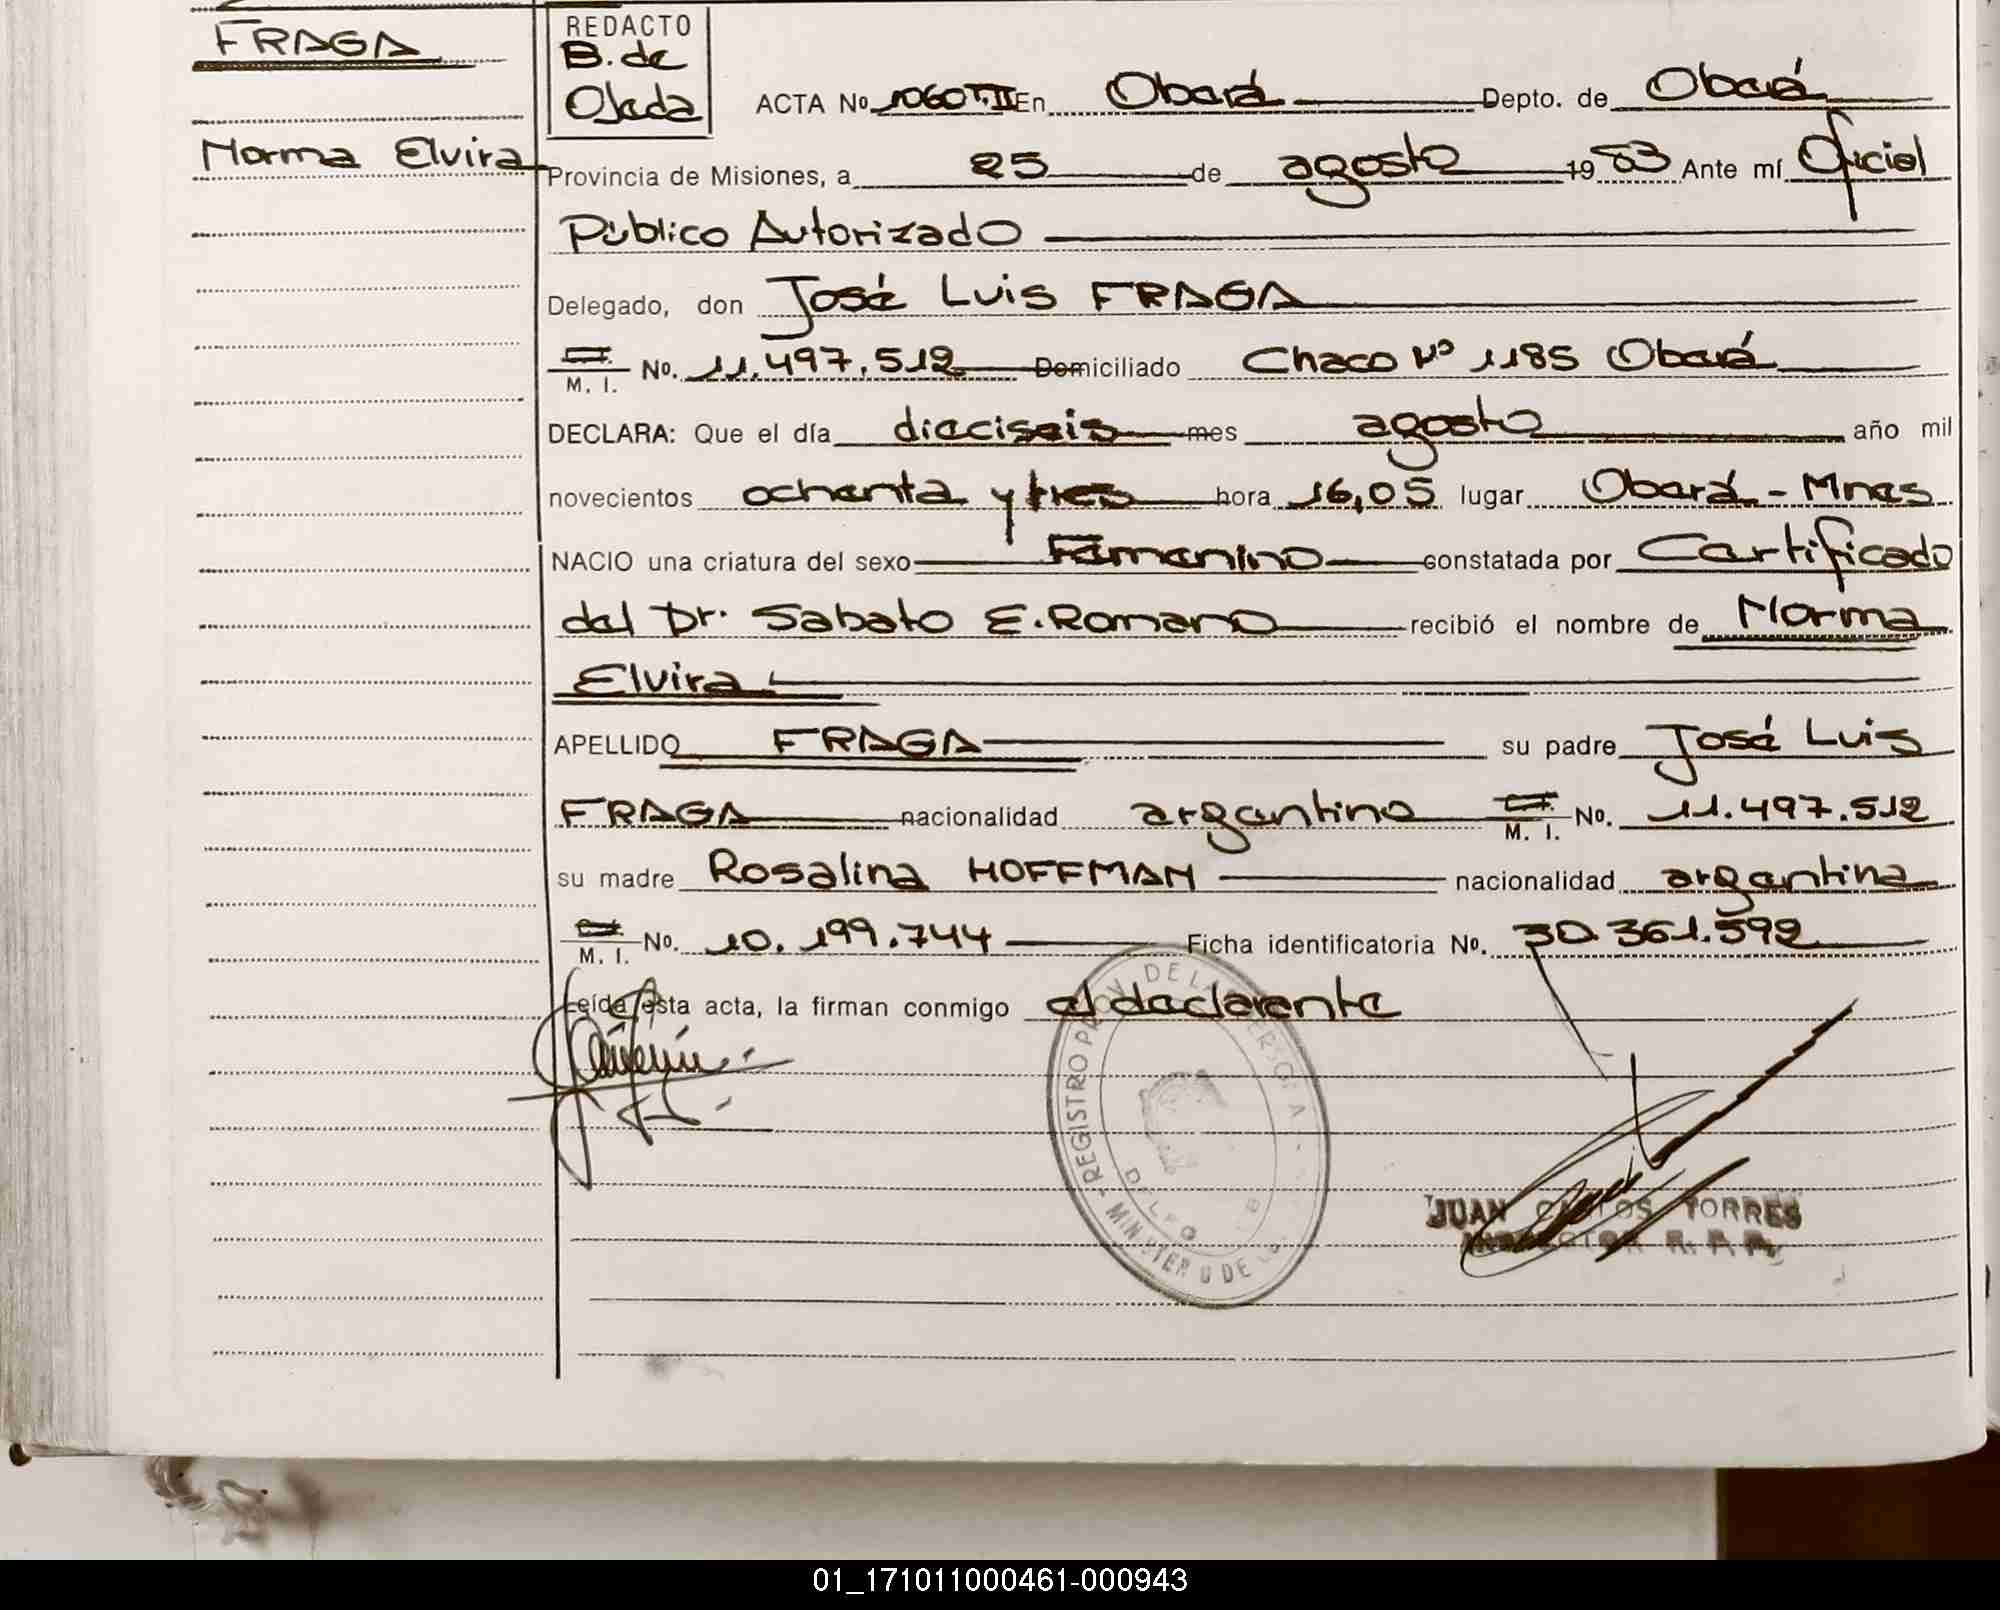 FRAGA
Norma Elvira
REDACTO
B. de
Ojeda
ACTA No 1060 T.II En Oberá Depto. de Oberá
Provincia de Misiones, a 25 de agosto 1983 Ante mí Oficial
Público Autorizado
Delegado, don José Luis FRAGA
M. I. No. 11.497.512 Domiciliado Chaco Nº 1185 Oberá
DECLARA: Que el día dieciseis mes agosto año mil
novecientos ochenta y tres hora 16,05 lugar Oberá - Mnes
NACIO una criatura del sexo Femenino constatada por Certificado
del Dr. Sabato E. Romano recibió el nombre de Norma
Elvira
APELLIDO FRAGA su padre José Luis
FRAGA nacionalidad argentino M. I. No. 11.497.512
su madre Rosalina HOFFMAN nacionalidad argentina
M. I. No. 10.199.744 Ficha identificatoria No. 30.361.592
Leída esta acta, la firman conmigo el declarente
REGISTRO PROV. DE LAS PERSONAS
JUAN CARLOS TORRES
INSPECTOR R. P. P.
01_171011000461-000943